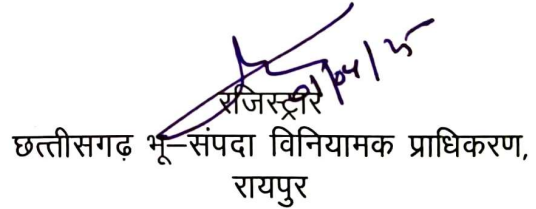 01/04/25
रजिस्ट्रार
छत्तीसगढ़ भू–संपदा विनियामक प्राधिकरण,
रायपुर